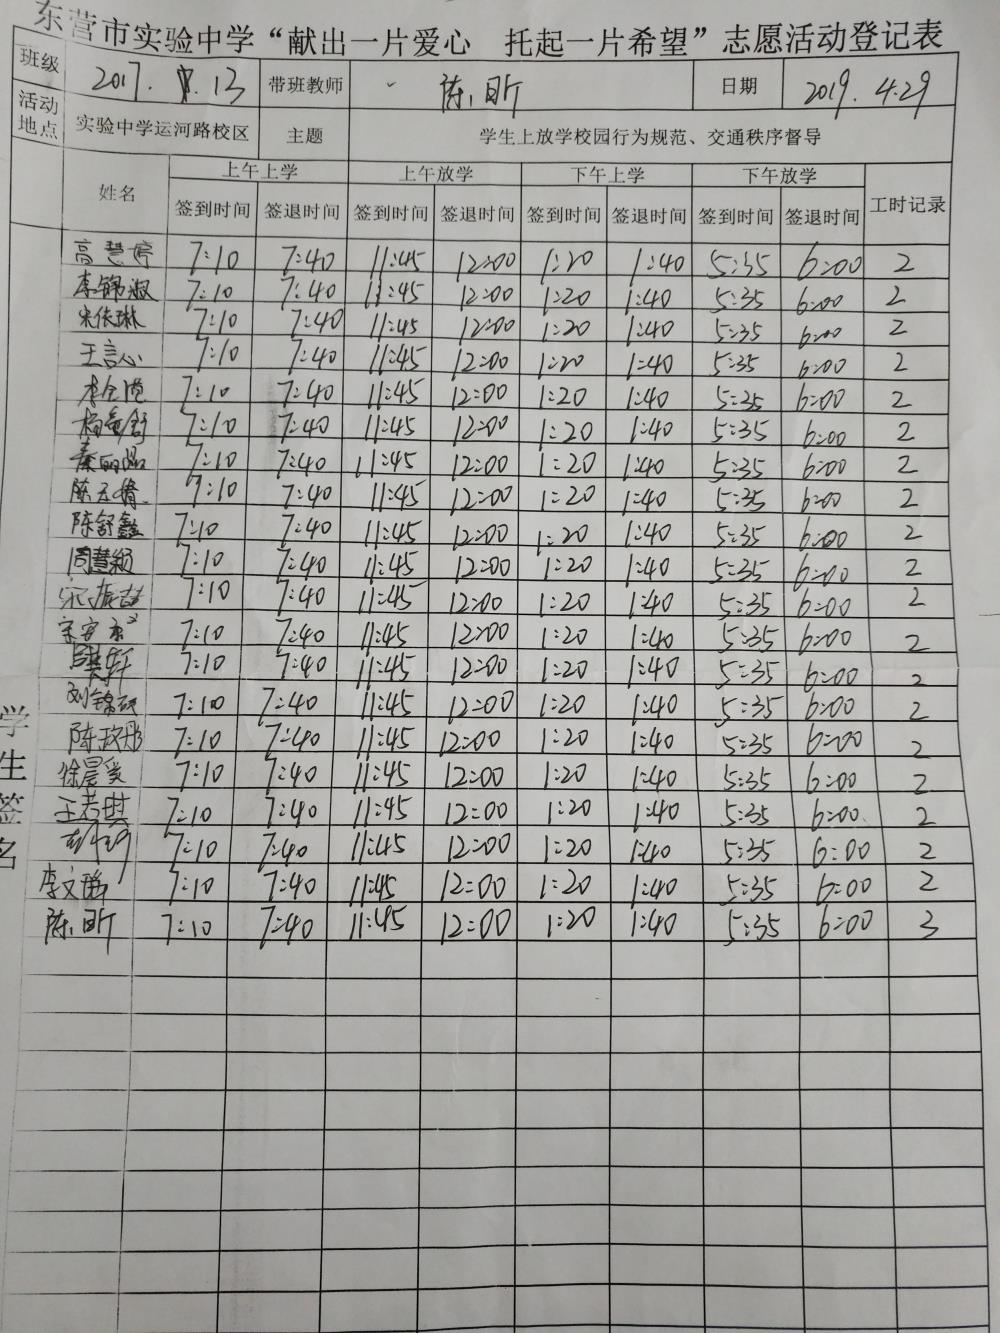 东营市实验中学“献出一片爱心 托起一片希望”志愿活动登记表
班级 2017. .13 带班教师 陈昕 日期 2019.4.29
活动地点 实验中学运河路校区 主题 学生上放学校园行为规范、交通秩序督导
姓名 上午上学 上午放学 下午上学 下午放学 工时记录
签到时间 签退时间 签到时间 签退时间 签到时间 签退时间 签到时间 签退时间
学生签名
高慧婷 7:10 7:40 11:45 12:00 1:20 1:40 5:35 6:00 2
李锦淑 7:10 7:40 11:45 12:00 1:20 1:40 5:35 6:00 2
宋依琳 7:10 7:40 11:45 12:00 1:20 1:40 5:35 6:00 2
王言心 7:10 7:40 11:45 12:00 1:20 1:40 5:35 6:00 2
7:10 7:40 11:45 12:00 1:20 1:40 5:35 6:00 2
7:10 7:40 11:45 12:00 1:20 1:40 5:35 6:00 2
7:10 7:40 11:45 12:00 1:20 1:40 5:35 6:00 2
7:10 7:40 11:45 12:00 1:20 1:40 5:35 6:00 2
陈舒鑫 7:10 7:40 11:45 12:00 1:20 1:40 5:35 6:00 2
周慧颖 7:10 7:40 11:45 12:00 1:20 1:40 5:35 6:00 2
7:10 7:40 11:45 12:00 1:20 1:40 5:35 6:00 2
7:10 7:40 11:45 12:00 1:20 1:40 5:35 6:00 2
7:10 7:40 11:45 12:00 1:20 1:40 5:35 6:00 2
刘锦 7:100 7:40 11:45 12:00 1:20 1:40 5:35 6:00 2
陈玟彤 7:10 7:40 11:45 12:00 1:20 1:40 5:35 6:00 2
徐晨爱 7:10 7:40 11:45 12:00 1:20 1:40 5:35 6:00 2
王若琪 7:10 7:40 11:45 12:00 1:20 1:40 5:35 6:00 2
7:10 7:40 11:45 12:00 1:20 1:40 5:35 6:00 2
李文 7:10 7:40 11:45 12:00 1:20 1:40 5:35 6:00 2
陈昕 7:10 7:40 11:45 12:00 1:20 1:40 5:35 6:00 3